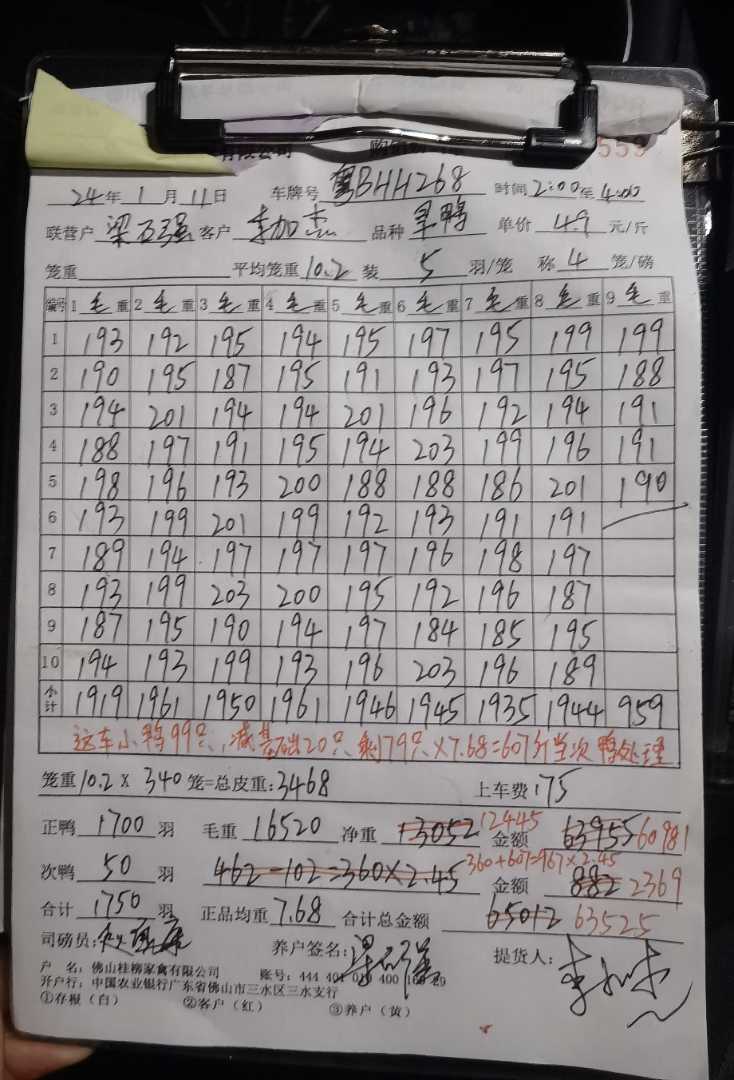 有限公司
559
24年1月11日 车牌号 粤BHH268 时间2:00至4:00
联营户 梁石强 客户 李加杰 品种 旱鸭 单价 4.9 元/斤
笼重 平均笼重10.2装 5 羽/笼 称 4 笼/磅
编号 1毛重 2毛重 3毛重 4毛重 5毛重 6毛重 7毛重 8毛重 9毛重
1 193 192 195 194 195 197 195 199 199
2 190 195 187 195 191 193 197 195 188
3 194 201 194 194 201 196 192 194 191
4 188 197 191 195 194 203 199 196 191
5 198 196 193 200 188 188 186 201 190
6 193 199 201 199 192 193 191 191
7 189 194 197 197 197 196 198 197
8 193 199 203 200 195 192 196 187
9 187 195 190 194 197 184 185 195
10 194 193 199 193 196 203 196 189
小计 1919 1961 1950 1961 1946 1945 1935 1944 959
这车小鸭99只,减基础20只剩79只×7.68=607斤当次鸭处理
笼重10.2×340笼=总皮重:3468 上车费175
正鸭 1700 羽 毛重 16520 净重 13052 12445 金额 63955 60981
次鸭 50 羽 462-102=360×2.45 360+607=967×2.45 金额 882 2369
合计 1750 羽 正品均重 7.68 合计总金额 65012 63525
司磅员: 养户签名: 提货人:
户 名:佛山桂柳家禽有限公司 账号:444 401 010 400 169 29
开户行:中国农业银行广东省佛山市三水区三水支行
①存根(白) ②客户(红) ③养户(黄)